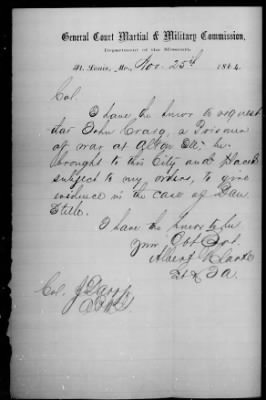 General Court Martial & Military Commission,
Department of the Missouri,
St. Louis, Mo., Nov. 25th 1864.
Col.
I have the honor to request
that John Craig, a Prisoner
of war at Alton Ills. be
brought to this City and placed
subject to my orders, to give
evidence in the case of Dan
I have the honor to be
Your Obt Svt.
Albert
Lt & JA
Col. J